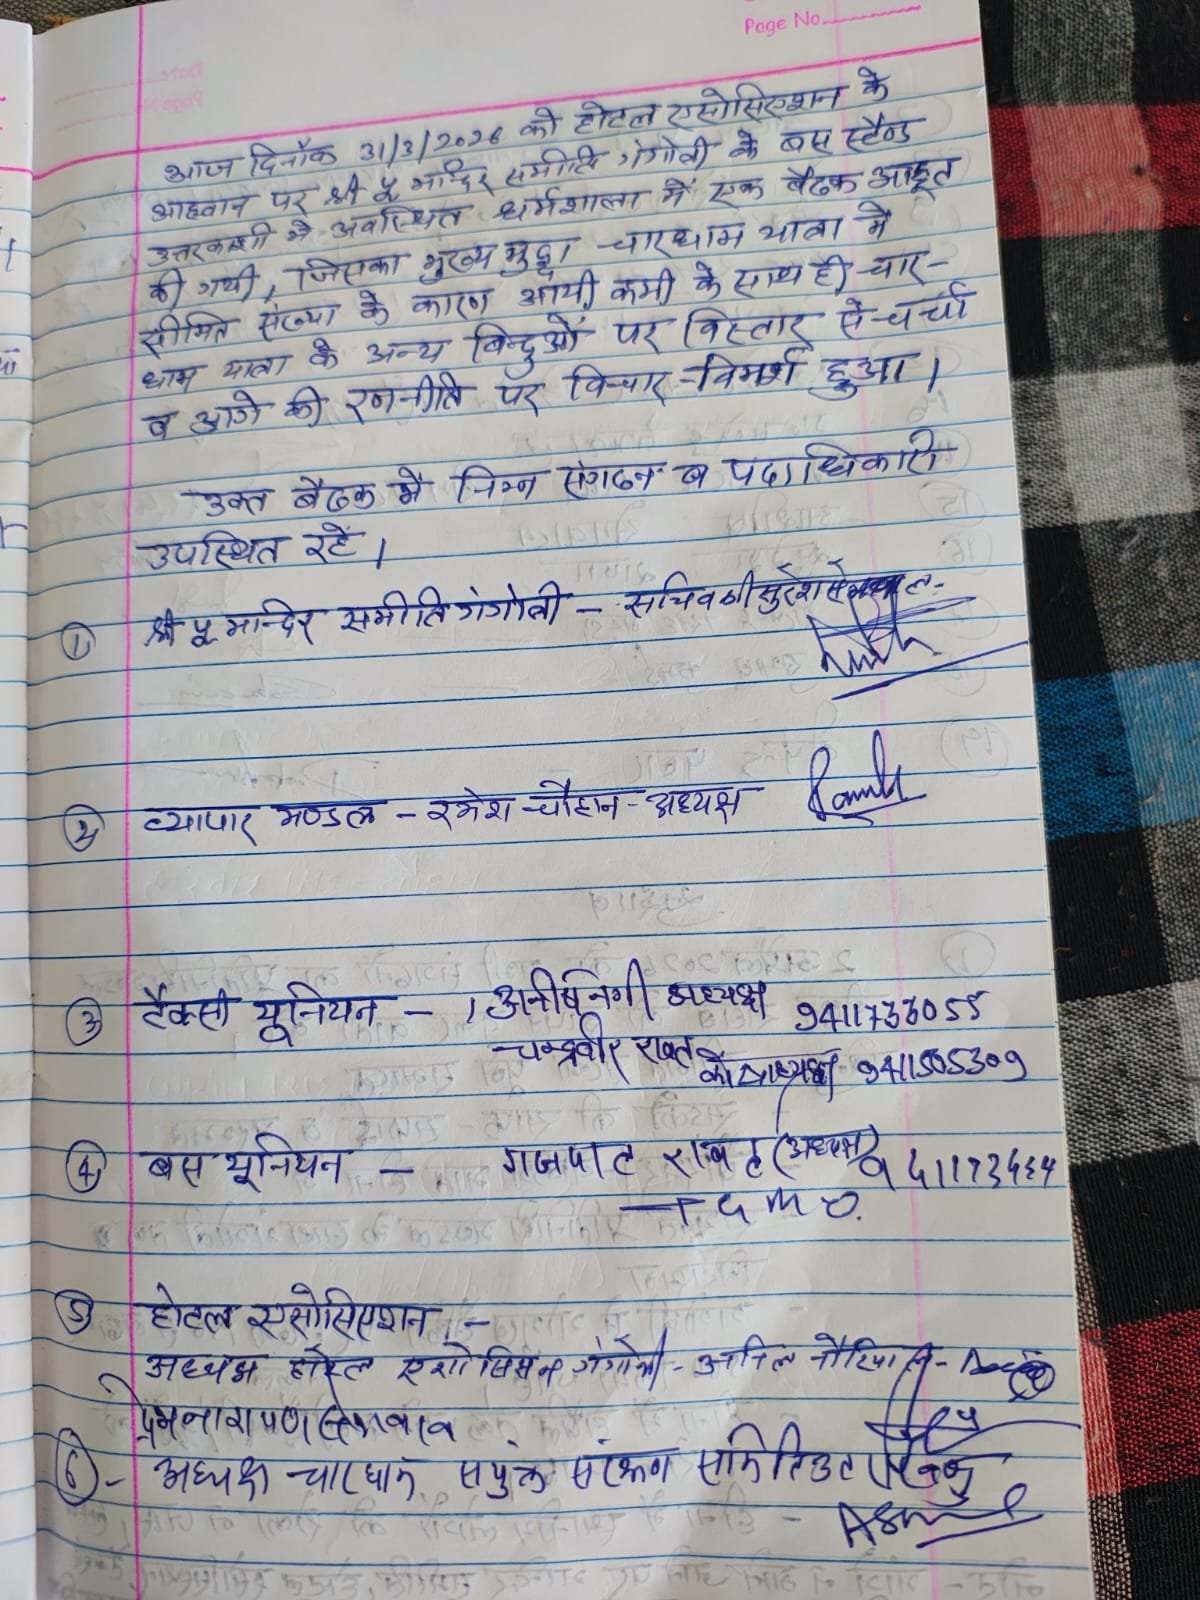 Page No.
आज दिनाँक 31/3/2026 को होटल एसोसिएशन के
आहवान पर श्री पू मन्दिर समीति गंगोत्री के बस स्टैण्ड
उत्तरकाशी मे अवस्थित धर्मशाला में एक बैठक आहूत
की गयी, जिसका मुख्य मुद्दा चारधाम यात्रा में
सीमित संख्या के कारण आयी कमी के साथ ही चार-
धाम यात्रा के अन्य बिन्दुओं पर विस्तार से चर्चा
व आगे की रणनीति पर विचार-विमर्श हुआ।
उक्त बैठक में निम्न संगठन व पदाधिकारी
उपस्थित रहें।
① श्री पू मन्दिर समीति गंगोत्री - सचिव श्री सुरेश सेमवाल-
② व्यापार मण्डल - रमेश चौहान - अध्यक्ष
③ टैक्सी यूनियन - अध्यक्ष 9411733055
चन्द्रवीर रावत कोषाध्यक्ष 9411505309
④ बस यूनियन - गजपाल रावत (अध्यक्ष)
T G M O.
⑤ होटल एसोसिएशन :-
अध्यक्ष होटल एशोसिसन गंगोत्री - अनिल नौटियाल -
⑥ - अध्यक्ष चारधाम संरक्षण समिति